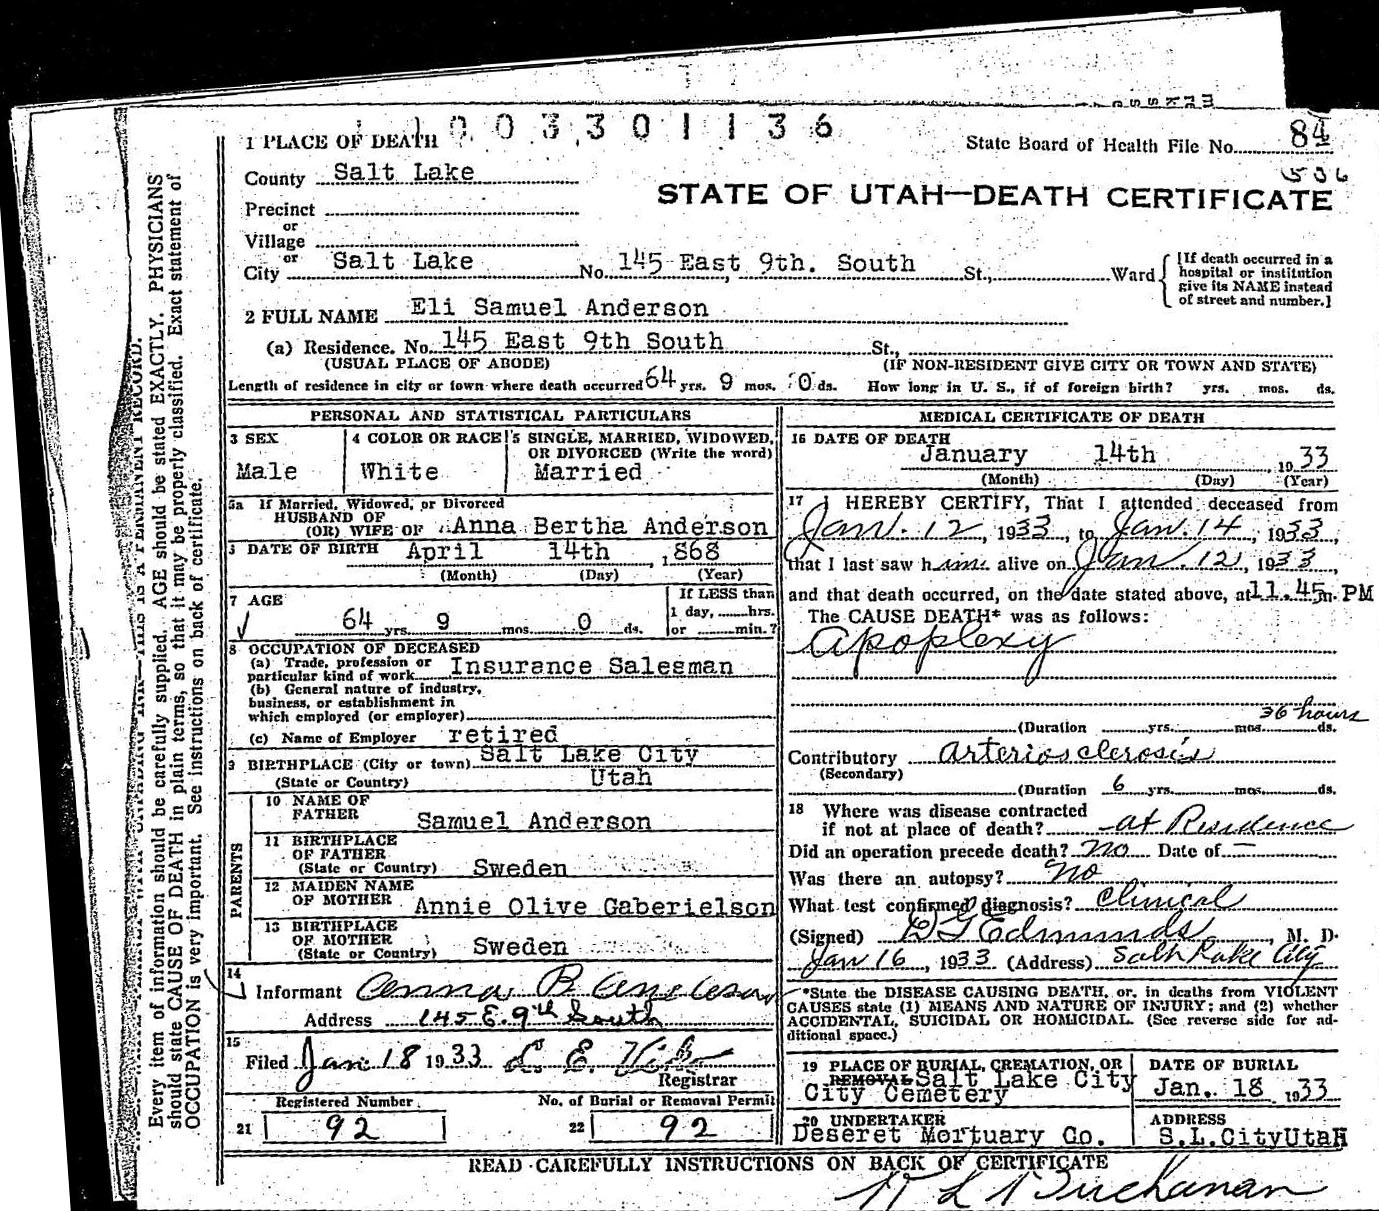 1003301136
1 PLACE OF DEATH
State Board of Health File No. 84
506
County Salt Lake
STATE OF UTAH—DEATH CERTIFICATE
Precinct
or
Village
or
City Salt Lake No. 145 East 9th. South St., Ward
[If death occurred in a
hospital or institution
give its NAME instead
of street and number.]
2 FULL NAME Eli Samuel Anderson
(a) Residence. No. 145 East 9th South St.,
(USUAL PLACE OF ABODE) (IF NON-RESIDENT GIVE CITY OR TOWN AND STATE)
Length of residence in city or town where death occurred 64 yrs. 9 mos. 0 ds. How long in U. S., if of foreign birth? yrs. mos. ds.
PERSONAL AND STATISTICAL PARTICULARS
3 SEX
Male
4 COLOR OR RACE
White
5 SINGLE, MARRIED, WIDOWED,
OR DIVORCED (Write the word)
Married
5a If Married, Widowed, or Divorced
HUSBAND OF
(OR) WIFE OF Anna Bertha Anderson
6 DATE OF BIRTH April 14th, 1868
(Month) (Day) (Year)
7 AGE
64 yrs. 9 mos. 0 ds.
If LESS than
1 day, hrs.
or min.?
8 OCCUPATION OF DECEASED
(a) Trade, profession or
particular kind of work Insurance Salesman
(b) General nature of industry,
business, or establishment in
which employed (or employer)
(c) Name of Employer retired
9 BIRTHPLACE (City or town) Salt Lake City
(State or Country) Utah
PARENTS
10 NAME OF
FATHER Samuel Anderson
11 BIRTHPLACE
OF FATHER
(State or Country) Sweden
12 MAIDEN NAME
OF MOTHER Annie Olive Gaberielson
13 BIRTHPLACE
OF MOTHER
(State or Country) Sweden
14
Informant Anna B Anderson
Address 145 E. 9th South
15
Filed Jan. 18 1933
Registrar
Registered Number
21 92
No. of Burial or Removal Permit
22 92
MEDICAL CERTIFICATE OF DEATH
16 DATE OF DEATH
January 14th, 1933
(Month) (Day) (Year)
17 I HEREBY CERTIFY, That I attended deceased from
Jan. 12, 1933, to Jan. 14, 1933,
that I last saw him alive on Jan. 12, 1933,
and that death occurred, on the date stated above, at 11.45m. PM
The CAUSE DEATH* was as follows:
Apoplexy
36 hours
(Duration yrs. mos. ds.
Contributory Arteriosclerosis
(Secondary)
(Duration 6 yrs. mos. ds.
18 Where was disease contracted
if not at place of death? at Residence
Did an operation precede death? No Date of —
Was there an autopsy? No
What test confirmed diagnosis? Clinical
(Signed) D G Edmunds, M. D.
Jan 16, 1933 (Address) Salt Lake City
*State the DISEASE CAUSING DEATH, or, in deaths from VIOLENT
CAUSES state (1) MEANS AND NATURE OF INJURY; and (2) whether
ACCIDENTAL, SUICIDAL OR HOMICIDAL. (See reverse side for ad-
ditional space.)
19 PLACE OF BURIAL, CREMATION, OR
REMOVAL Salt Lake City
City Cemetery
DATE OF BURIAL
Jan. 18 1933
20 UNDERTAKER
Deseret Mortuary Co.
ADDRESS
S.L.CityUtaH
READ CAREFULLY INSTRUCTIONS ON BACK OF CERTIFICATE
Buchanan
Every item of information should be carefully supplied. AGE should be stated EXACTLY. PHYSICIANS
should state CAUSE OF DEATH in plain terms, so that it may be properly classified. Exact statement of
OCCUPATION is very important. See instructions on back of certificate.